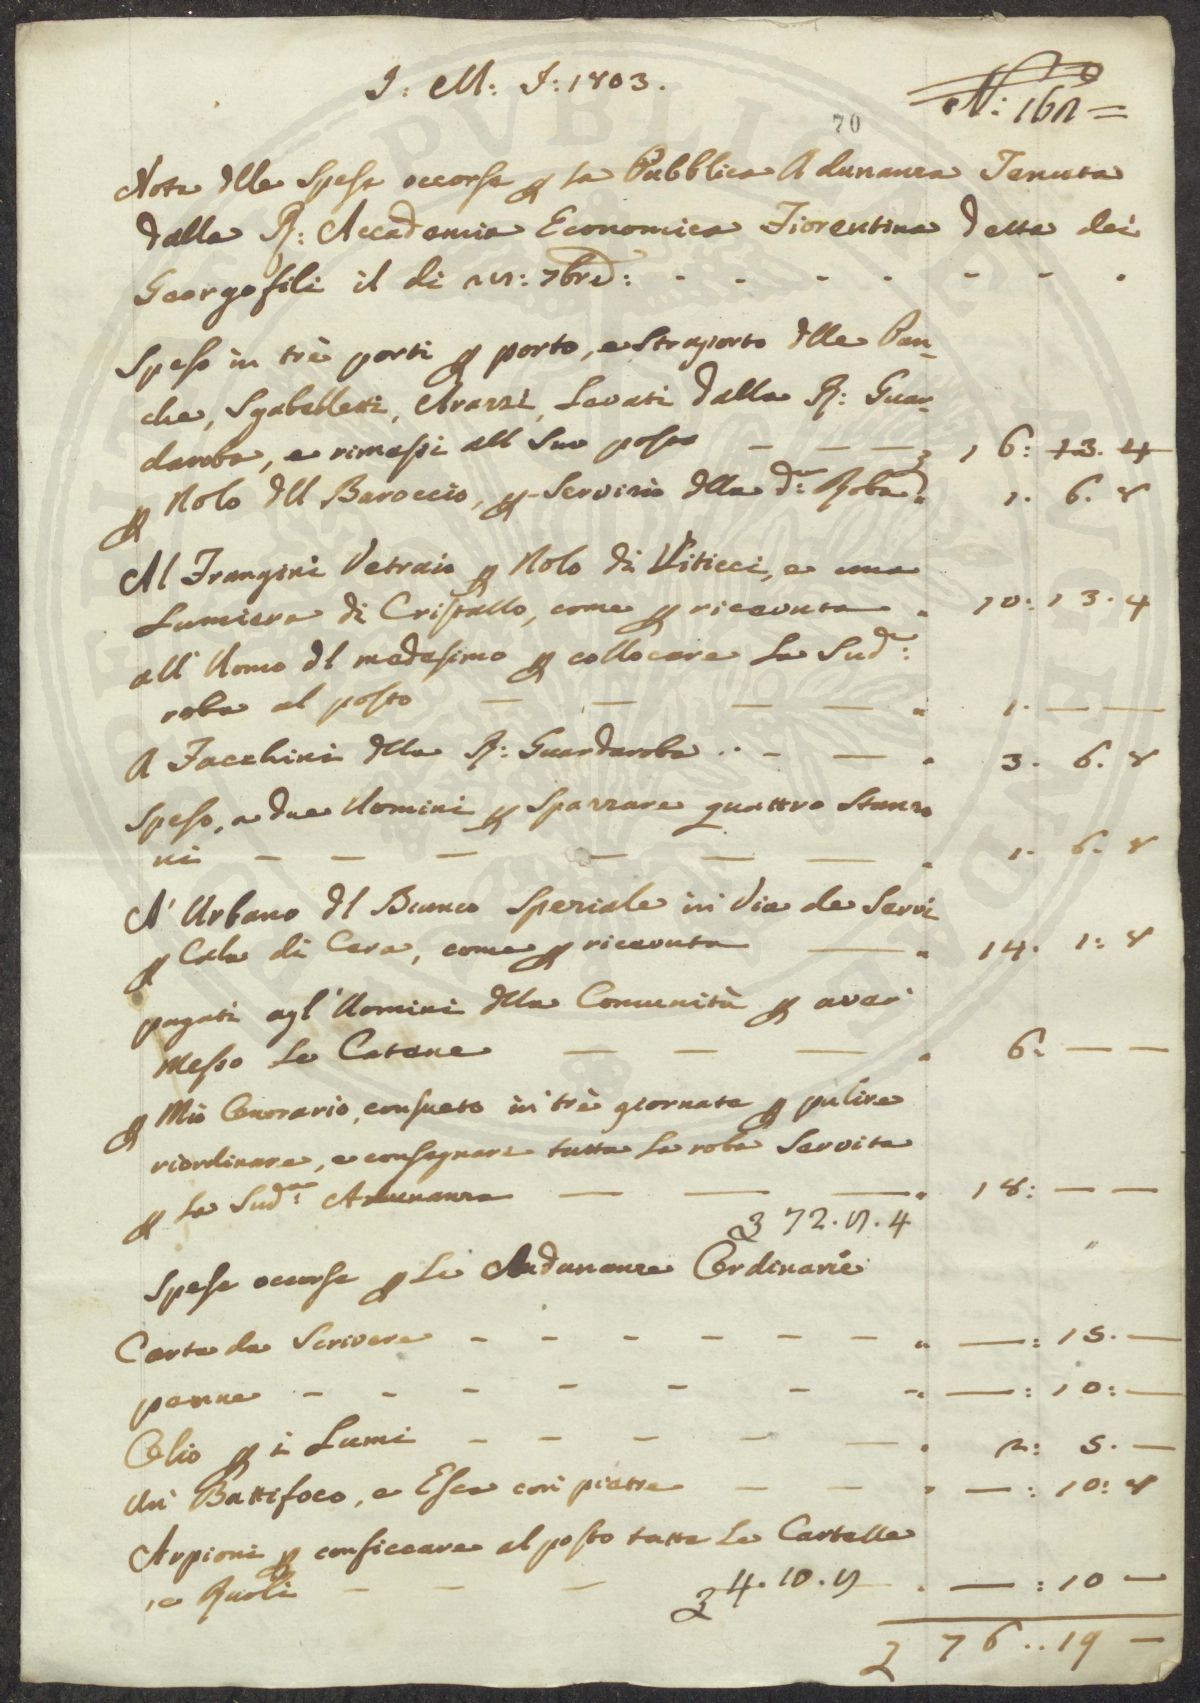 J: M: J: 1803.
N: 168=
70
Nota dlle Spese occorse p la Pubblica Adunanza Tenuta
dalla R: Accademia Economica Fiorentina detta dei
Georgofili il di : 7bre:
Speso in trè porti p porto, e Straporto dlle Pan-
che, Sgabelletti, Arazzi, Levati dalla R: Guar-
daroba, e rimessi all Suo posto — — — 16: 13. 4
p Nolo dll Baroccio, p Servizio dlla d.a Roba 1. 6. 8
Al Frangini Vetraio p Nolo di Viticci, e una
Lumiera di Cristallo, come p riceuuta 10: 13. 4
all' Uomo dl medesimo p collocare La Sud.a:
roba al posto — — — — 1. — —
A Facchini dlla R: Guardaroba .. - — 3. 6. 8
Speso, a due Uomini p Spazzare quattro Stanzo
ni — — — — — — 1. 6. 8
A' Urbano dl Bianco Speziale in Via de Servi
p Calo di Cera, come p riceuuta — 14. 1: 8
pagati agl' Uomini dlla Comunità p aver
Messo Le Catene — — — 6. — —
p Mio Onorario, consueto in trè giornate p pulire
riordinare, e consegnare tutta La roba Servita
p La Sud.a: Adunanza — — — 18: — —
72. 8. 4
Spese occorse p Le Adunanze Ordinarie "
Carta da Scrivere - - - - - - — : 15. —
penne - - - - - - — : 10: —
Olio p i Lumi - - - - — 2: 5. —
Un Battifoco, e Esca con pietre — — — : 10: 8
Arpioni p conficcare al posto tutte Le Cartelle
e Ruoli — — — 4. 10. 8 — : 10 —
76 .. 19 —